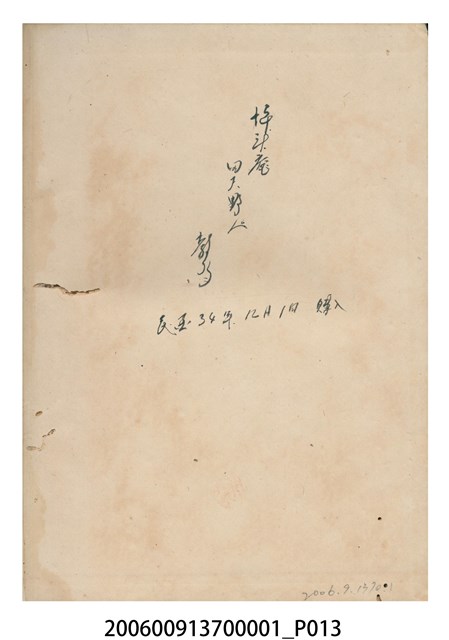 斗庵
田夫野人
民國34年12月1日 購入
2006.9.1370.1
200600913700001_P013